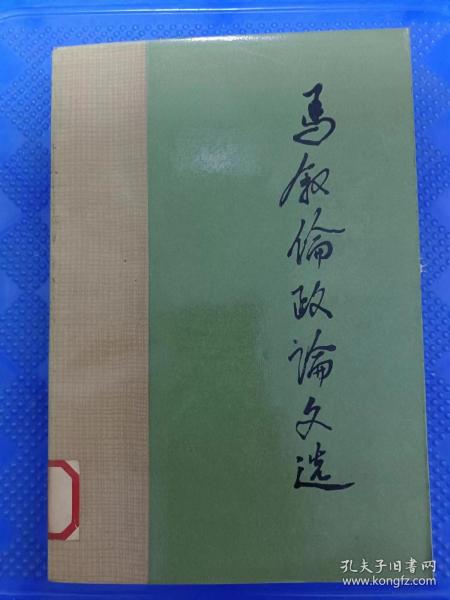 馬叙倫政論文选
孔夫子旧书网
www.kongfz.com